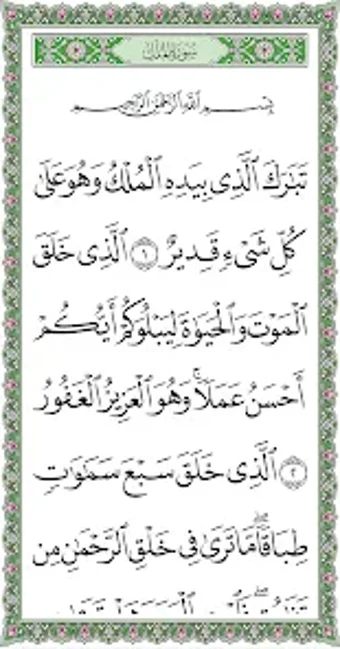 سُورَةُ المُلْكِ
بِسْمِ ٱللَّهِ ٱلرَّحْمَٰنِ ٱلرَّحِيمِ
تَبَٰرَكَ ٱلَّذِى بِيَدِهِ ٱلْمُلْكُ وَهُوَ عَلَىٰ
كُلِّ شَىْءٍ قَدِيرٌ ١ ٱلَّذِى خَلَقَ
ٱلْمَوْتَ وَٱلْحَيَوٰةَ لِيَبْلُوَكُمْ أَيُّكُمْ
أَحْسَنُ عَمَلًاۚ وَهُوَ ٱلْعَزِيزُ ٱلْغَفُورُ
٢ ٱلَّذِى خَلَقَ سَبْعَ سَمَٰوَٰتٍ
طِبَاقًاۖ مَّا تَرَىٰ فِى خَلْقِ ٱلرَّحْمَٰنِ مِن